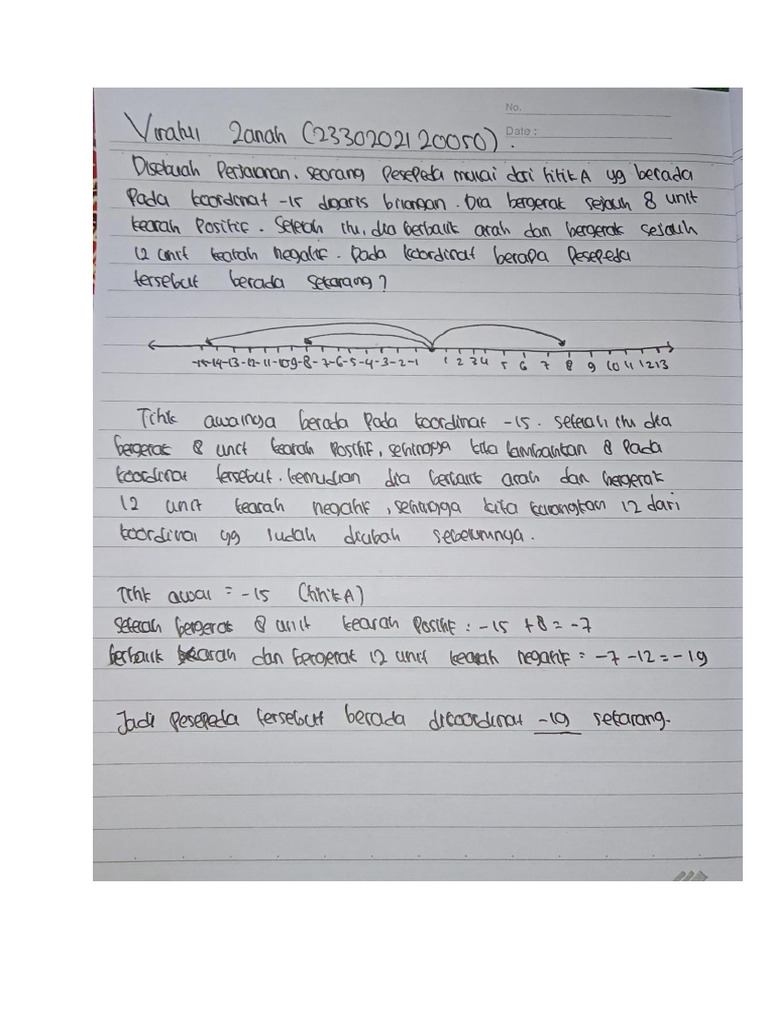 No.
Date :
Viratul Zanah (2330202120050).
Disebuah Perjalanan, seorang Pesepeda mulai dari titik A yg berada
Pada koordinat -15 digaris bilangan. Dia bergerak sejauh 8 unit
kearah Positif. Setelah itu, dia berbalik arah dan bergerak sejauh
12 unit kearah negatif. Pada koordinat berapa Pesepeda
tersebut berada sekarang?
-15-14-13-12-11-10-9-8-7-6-5-4-3-2-1 1 2 3 4 5 6 7 8 9 10 11 12 13
Titik awalnya berada Pada koordinat -15. setelah itu dia
bergerak 8 unit kearah Positif, sehingga kita tambahkan 8 Pada
koordinat tersebut. kemudian dia berbalik arah dan bergerak
12 unit kearah negatif, sehingga kita kurangkan 12 dari
koordinat yg sudah diubah sebelumnya.
Titik awal = -15 (titik A)
Setelah bergerak 8 unit kearah Positif : -15 + 8 = -7
berbalik kearah dan bergerak 12 unit kearah negatif = -7 -12 = -19
Jadi Pesepeda tersebut berada dikoordinat -19 sekarang.